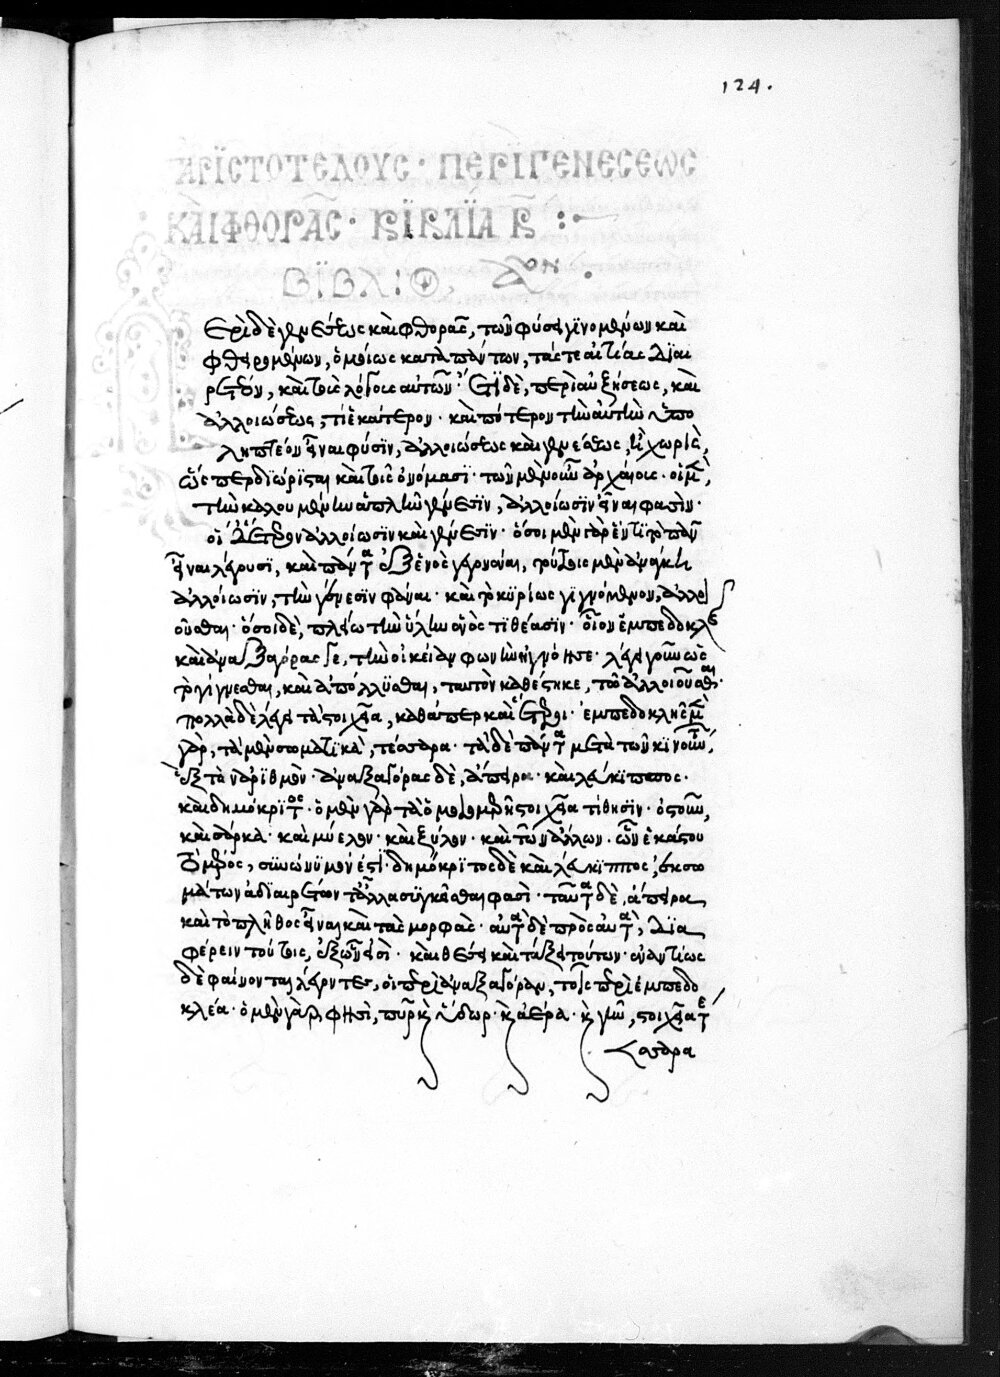 124.
ἈΡΙΣΤΟΤΕΛΟΥΣ· ΠΕΡΪ ΓΕΝΕΣΕΩΣ
ΚΑῚ ΦΘΟΡΑ͂Σ· ΒΙΒΛΪΑ Β̄ :
ΒΪΒΛΙΟ, ᾱον.
Ερὶ δὲ γενέσεως καὶ φθορᾶς, τῶν φύσει γϊνομένων καὶ
φθειρομένων, ὁμοίως κατὰ πάντων, τάς τε αἰτίας δϊαι
ρετέον, καὶ τοὺς λόγους αὐτῶν· ἔτϊ δὲ, περὶ αὐξήσεως, καὶ
ἀλλοιώσεως, τί ἑκάτερον· καὶ πότερον τὴν αὐτὴν ὑπο
ληπτέον εἶναι φύσϊν, ἀλλοιώσεως καὶ γενέσεως, ἢ χωρὶς,
ὥσπερ δϊώρϊσται καὶ τοῖς ὀνόμασϊ· τῶν μὲν οὖν ἀρχαίων· οἱ μὲν,
τὴν καλουμένην ἁπλῆν γένεσϊν, ἀλλοίωσϊν εἶναι φασὶν·
οἱ δ' ἕτερον ἀλλοίωσϊν καὶ γένεσϊν· ὅσοι μὲν γὰρ ἕν τϊ τὸ πᾶν
εἶναι λέγουσϊ, καὶ πάντα ἐξ ἑνὸς γεννῶσι, τούτοις μὲν ἀνάγκη
ἀλλοίωσϊν, τὴν γένεσϊν φάναι· καὶ τὸ κϋρίως γϊγνόμενον, ἀλλοι
οῦσθαι· ὅσοι δὲ, πλείω τὴν ὕλην ἑνὸς τϊθέασϊν· οἷον ἐμπεδοκλῆς
καὶ ἀναξαγόρας γε, τὴν οἰκείαν φωνὴν ἠγνόησε· λέγει γοῦν ὡς
τὸ γίγνεσθαι, καὶ ἀπόλλϋσθαι, ταυτὸν καθέστηκε, τῶ ἀλλοιοῦσθαι·
πολλὰ δὲ λέγει τὰ στοιχεῖα, καθάπερ καὶ ἕτεροι· ἐμπεδοκλῆς μὲν
γὰρ, τὰ μὲν σωματϊκὰ, τέσσαρα· τὰ δὲ πάντα μετὰ τῶν κϊνούντων,
ἓξ τὸν ἀρϊθμὸν· ἀναξαγόρας δὲ, ἄπειρα· καὶ λεύκϊππος·
καὶ δημόκρϊτος· ὁ μὲν γὰρ τὰ ὁμοιομερῆ στοιχεῖα τίθησϊν· ὀστοῦν,
καὶ σάρκα· καὶ μύελον· καὶ ξύλον· καὶ τῶν ἄλλων· ὧν ἑκάστου
τὸ μέρος, σϋνώνϋμον ἐστϊ· δημόκρϊτος δὲ καὶ λεύκϊππος, ἐκ σω
μάτων ἀδϊαιρέτων τἆλλα συγκεῖσθαι φασὶ· ταῦτα δὲ, ἄπειρα
καὶ τὸ πλῆθος εἶναι καὶ τὰς μορφὰς· αὐτὰ δὲ πρὸς αὑτὰ, δϊα
φέρειν τούτοις, ἐξ ὧν εἰσὶ· καὶ θέσει καὶ τάξει τούτων· ἐναντίως
δὲ φαίνονται λέγοντες, οἱ περὶ ἀναξαγόραν, τοῖς περὶ ἐμπεδο
κλέα· ὁ μὲν γάρ φησὶ, πῦρ κ ὕδωρ· κ ἀέρα· κ γῆν, στοιχεῖα τέσ
σαρα